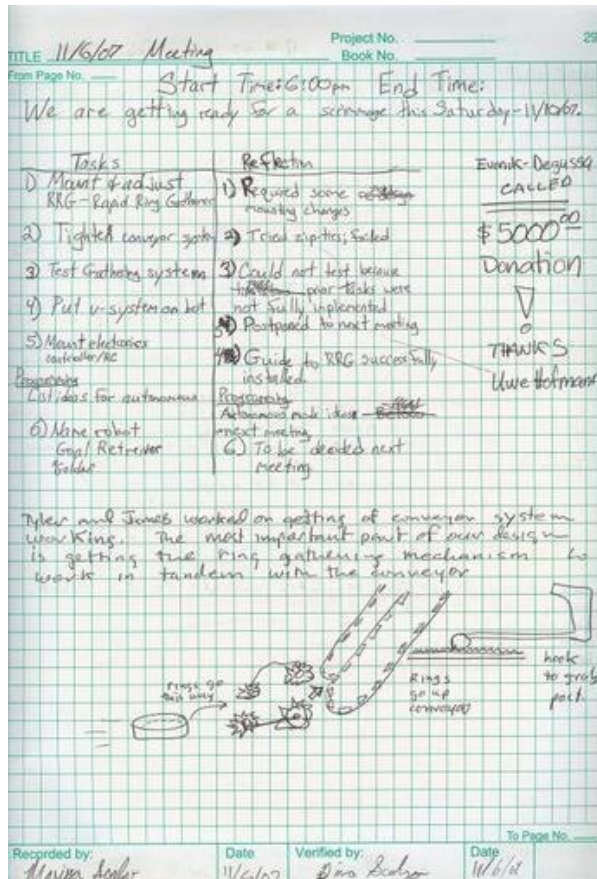 Project No.
29
TITLE 11/6/07 Meeting
Book No.
From Page No.
Start Time: 6:00pm End Time:
We are getting ready for a scrimmage this Saturday - 11/10/07.
Tasks
1) Mount & adjust
RRG - Rapid Ring Gatherer
2) Tighten conveyor system
3) Test Gathering system
4) Put v-system on bot
5) Mount electronics
controller/RC
Programming
List ideas for autonomous
6) Name robot
Goal Retriever
Reflection
1) Required some
mounting changes
2) Tried zip-ties; failed
3) Could not test because
prior tasks were
not fully implemented
Postponed to next meeting
Guide to RRG successfully
installed.
Programming
Autonomous mode ideas
next meeting
6) To be decided next
meeting
Evonik-Degussa
CALLED
$5000.00
Donation
!
THANKS
Uwe Hofmann
Tyler and James worked on getting of conveyor system
working. The most important part of our design
is getting the ring gathering mechanism to
work in tandem with the conveyor
rings go
this way
Rings
go up
conveyor
hook
to grab
post.
To Page No.
Recorded by:
Date
11/6/07
Verified by:
Date